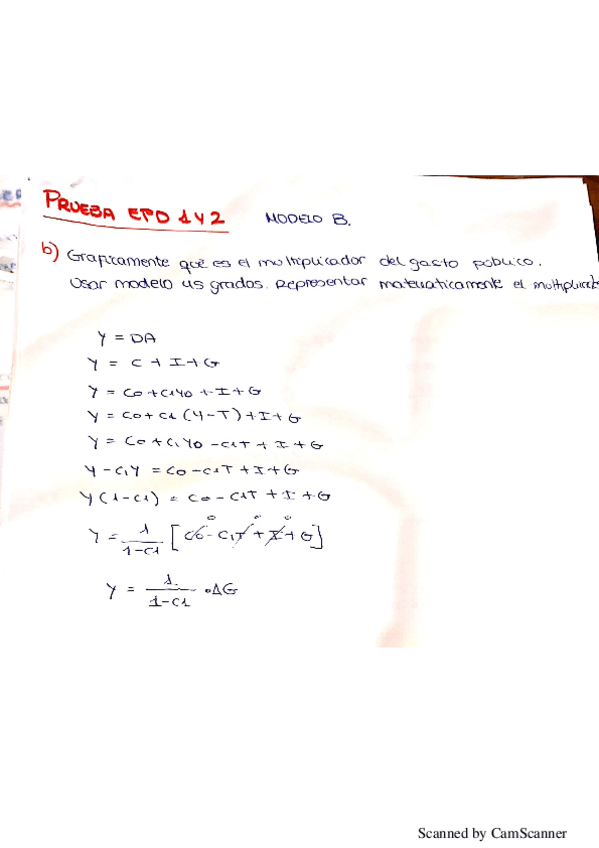 PRUEBA EPD 1 Y 2 MODELO B.
b) Graficamente qué es el multiplicador del gasto público.
Usar modelo 45 grados. Representar matematicamente el multiplicad
Y = DA
Y = C + I + G
Y = C0 + C1YD + I + G
Y = C0 + C1 (Y-T) + I + G
Y = C0 + C1YD - C1T + I + G
Y - C1Y = C0 - C1T + I + G
Y (1-C1) = C0 - C1T + I + G
Y = 1/1-C1 [C0 - C1T + I + G]
Y = 1/1-C1 · ΔG
Scanned by CamScanner